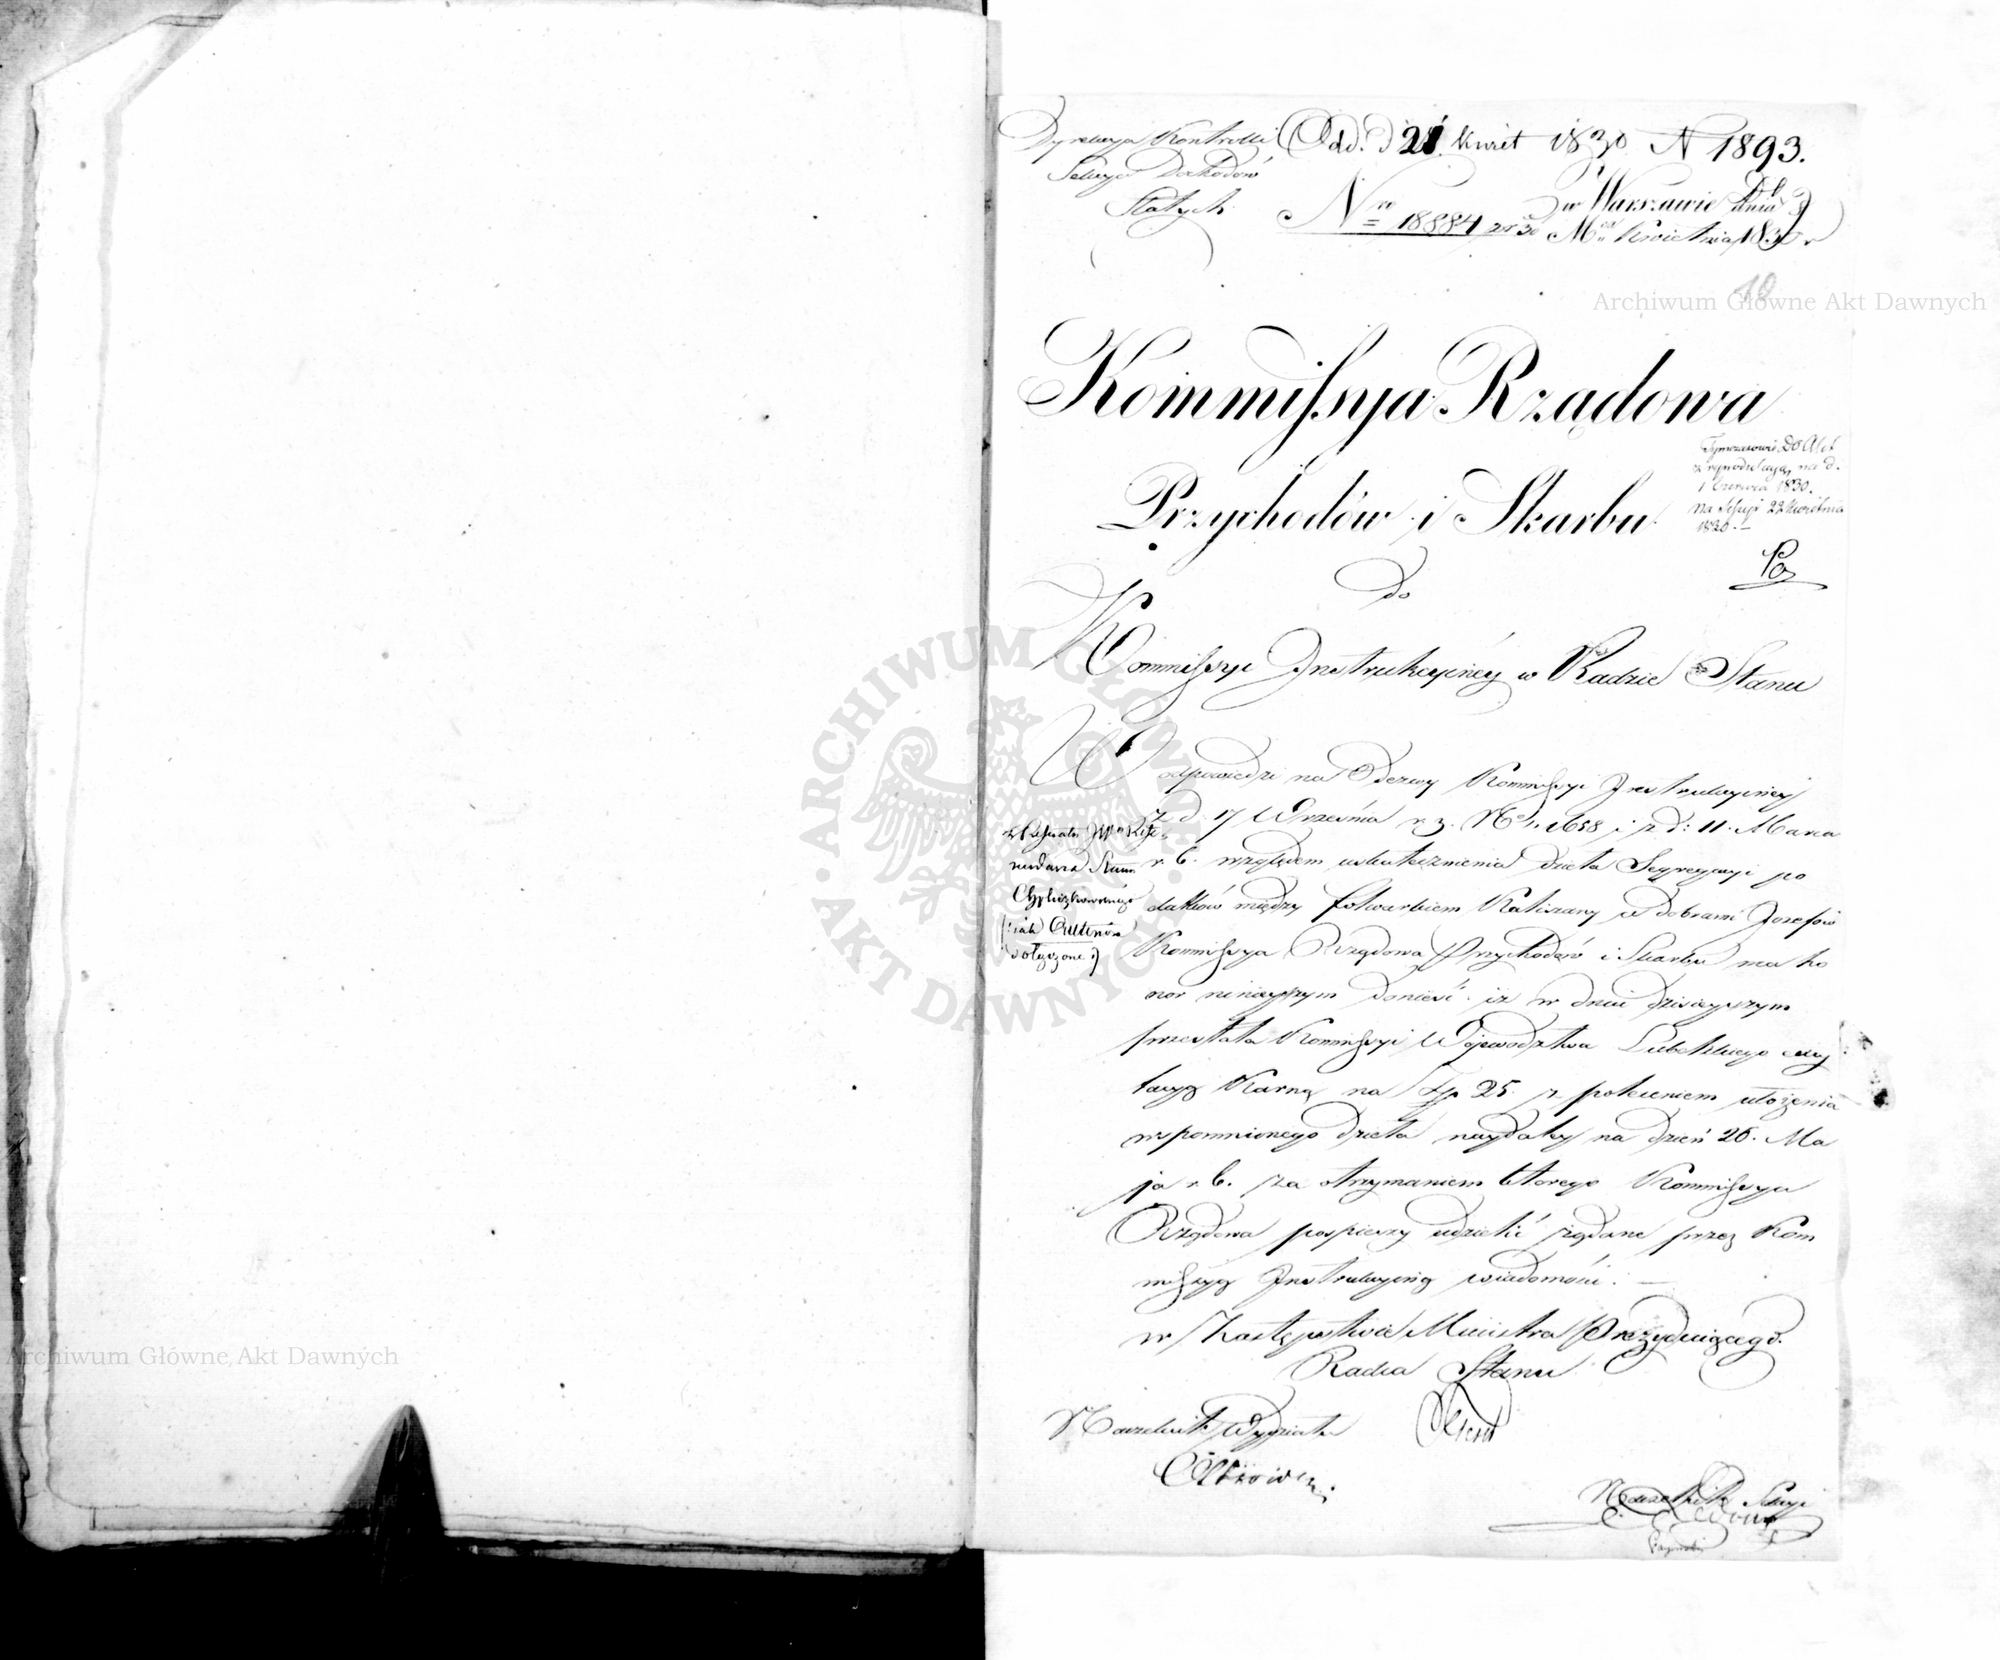 Dyrekcya Kontrolli
Sekcya Dochodów
Stałych
Odd. D. 21 kwiet 1830 N 1893.
Nro 18884 w Warszawie dnia 9
Mca Kwietnia 1830 r
10
Archiwum Główne Akt Dawnych
Kommissya Rządowa
Przychodów i Skarbu
Tymczasowie Do Akt
z reproducyą na d.
1 Czerwca 1830.
na Sessyi 22 Kwietnia
1830. —
do
Kommissyi Instrukcyiney w Radzie Stanu
W odpowiedzi na Odezwy Kommissyi Instrukcyiney
z d. 17 Września r. z. No. 1658 i z d: 11. Marca
r. b. względem uskutecznienia dzieła Segregacyi po
datków między folwarkiem Kaliszany a dobrami Józefów
Kommissya Rządowa Przychodów i Skarbu ma ho
nor nineyszym donieść iż w dniu dzisieyszym
przesłała Kommissyi Województwa Lubelskiego
karną na Zp 25. z poleceniem ułożenia
wspomnionego dzieła naydaley na dzień 26. Ma
ja r. b. za otrzymaniem którego Kommissya
Rządowa pospieszy udzielić żądane przez Kom
missyę Instrukcyiną wiadomości. —
w Zastępstwie Ministra Prezyduiącego.
Radca Stanu
Naczelnik Wydziału
Naczelnik Sekcyi
ARCHIWUM GŁÓWNE AKT DAWNYCH
Archiwum Główne Akt Dawnych